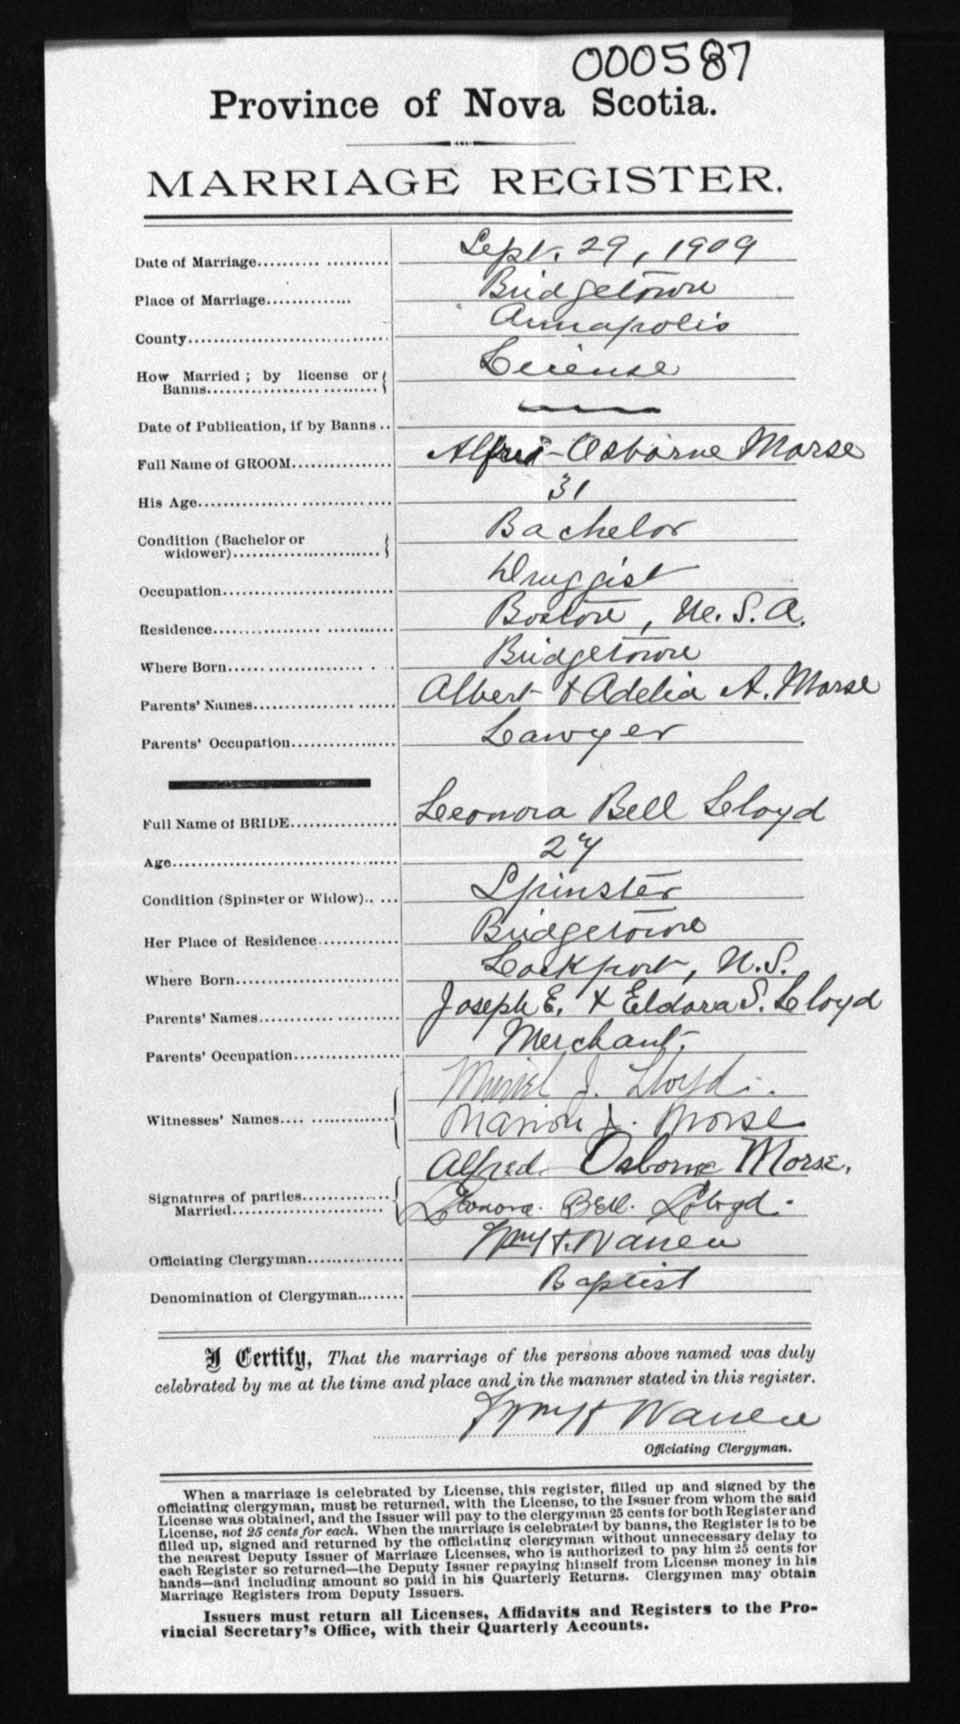 000587
Province of Nova Scotia.
MARRIAGE REGISTER.
Date of Marriage.......... .......... Sept. 29, 1909
Place of Marriage.............. Bridgetown
County................................ Annapolis
How Married ; by license or
Banns................................ License
Date of Publication, if by Banns .. —
Full Name of GROOM................ Alfred Osborne Morse
His Age................................ 31
Condition (Bachelor or
widower)........................ Bachelor
Occupation............................ Druggist
Residence................ ........... Boston, U.S.A.
Where Born.................... . . Bridgetown
Parents' Names............... ...... Albert & Adelia A. Morse
Parents' Occupation................ Lawyer
Full Name of BRIDE................ Leonora Bell Lloyd
Age.................................... 27
Condition (Spinster or Widow).. ... Spinster
Her Place of Residence............. Bridgetown
Where Born......................... Lockport, N.S.
Parents' Names............... ...... Joseph E. & Eldora S. Lloyd
Parents' Occupation................ Merchant.
Muriel J. Lloyd.
Witnesses' Names.... .............. Marion J. Morse
Alfred Osborne Morse.
Signatures of parties...............
Married......................... Leonora Bell Lloyd.
Officiating Clergyman............... Wm H. Warren
Denomination of Clergyman........ Baptist
I Certify, That the marriage of the persons above named was duly
celebrated by me at the time and place and in the manner stated in this register.
Wm H Warren
Officiating Clergyman.
When a marriage is celebrated by License, this register, filled up and signed by the
officiating clergyman, must be returned, with the License, to the Issuer from whom the said
License was obtained, and the Issuer will pay to the clergyman 25 cents for both Register and
License, not 25 cents for each. When the marriage is celebrated by banns, the Register is to be
filled up, signed and returned by the officiating clergyman without unnecessary delay to
the nearest Deputy Issuer of Marriage Licenses, who is authorized to pay him 25 cents for
each Register so returned—the Deputy Issuer repaying himself from License money in his
hands—and including amount so paid in his Quarterly Returns. Clergymen may obtain
Marriage Registers from Deputy Issuers.
Issuers must return all Licenses, Affidavits and Registers to the Pro-
vincial Secretary's Office, with their Quarterly Accounts.